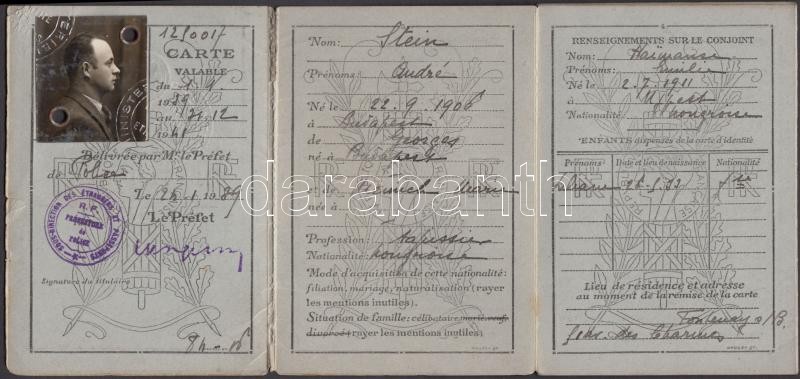 12J0017
CARTE
VALABLE
du 1.9
1939
au 31.12
1941
Délivrée par Mr le Préfet
de Police
Le 26-1-1939
Le Préfet
SOUS-DIRECTION DES ÉTRANGERS ET PASSEPORTS
R.F.
PRÉFECTURE
de
POLICE
Signature du titulaire
Nom: Stein
Prénoms: André
Né le 22.9.1906
à Budapest
de Georges
né à Budapest
et de
née à
Profession: Tapissier
Nationalité: hongroise
Mode d'acquisition de cette nationalité:
filiation, mariage, naturalisation (rayer
les mentions inutiles).
Situation de famille: célibataire, marié, veuf,
divorcé (rayer les mentions inutiles).
RENSEIGNEMENTS SUR LE CONJOINT
Nom:
Prénoms: Emilie
Né le 2.7.1911
à Ujpest
Nationalité: hongroise
ENFANTS dispensés de la carte d'identité
Prénoms Date et lieu de naissance Nationalité
Liliane
Lieu de résidence et adresse
au moment de la remise de la carte
Fontenay s/B.
des Charmes
darabanth